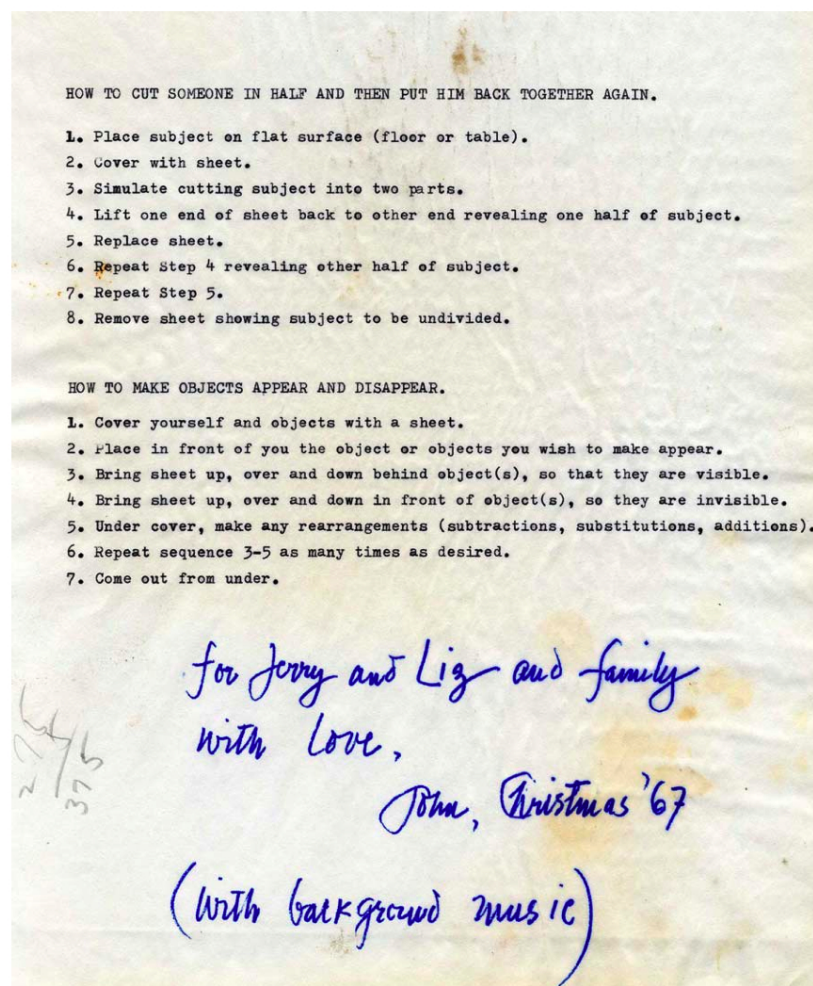 HOW TO CUT SOMEONE IN HALF AND THEN PUT HIM BACK TOGETHER AGAIN.
1. Place subject on flat surface (floor or table).
2. Cover with sheet.
3. Simulate cutting subject into two parts.
4. Lift one end of sheet back to other end revealing one half of subject.
5. Replace sheet.
6. Repeat Step 4 revealing other half of subject.
7. Repeat Step 5.
8. Remove sheet showing subject to be undivided.
HOW TO MAKE OBJECTS APPEAR AND DISAPPEAR.
1. Cover yourself and objects with a sheet.
2. Place in front of you the object or objects you wish to make appear.
3. Bring sheet up, over and down behind object(s), so that they are visible.
4. Bring sheet up, over and down in front of object(s), so they are invisible.
5. Under cover, make any rearrangements (subtractions, substitutions, additions).
6. Repeat sequence 3-5 as many times as desired.
7. Come out from under.
for Jerry and Liz and family
with love,
John, Christmas '67
(with background music)